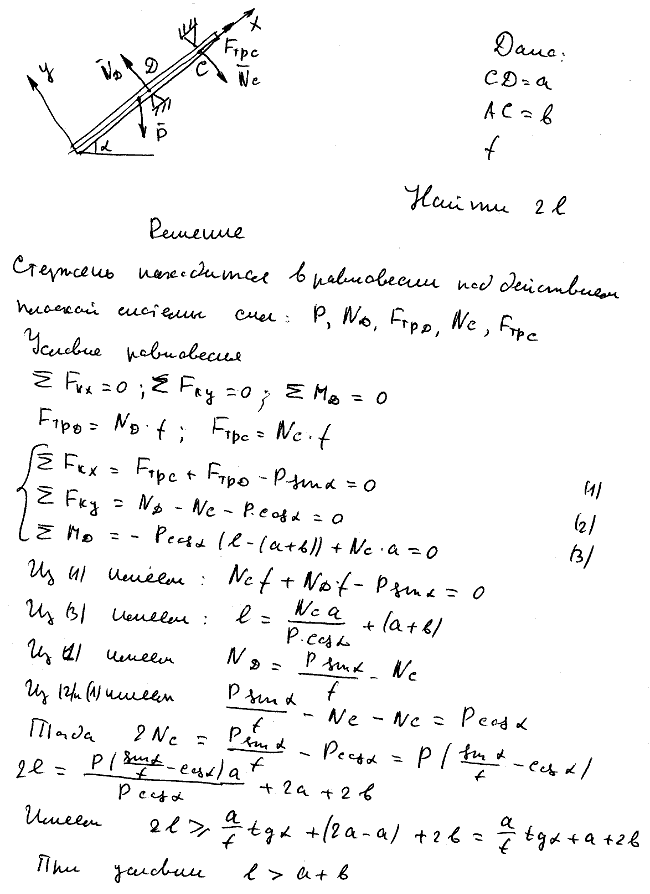 x
y
N̄_D D
C
F_трс
N̄_c
P̄
α
Дано:
CD = a
AC = b
f
Найти 2l
Решение
Стержень находится в равновесии под действием
плоской системы сил: P, N_D, F_трD, N_c, F_трс
Условие равновесия
Σ F_кx = 0 ; Σ F_кy = 0 ; Σ M_D = 0
F_трD = N_D · f ; F_трс = N_c · f
Σ F_кx = F_трс + F_трD - P sin α = 0 (1)
Σ F_кy = N_D - N_c - P·cos α = 0 (2)
Σ M_D = - P cos α (l - (a+b)) + N_c · a = 0 (3)
Из (1) имеем : N_c f + N_D · f - P sin α = 0
Из (3) имеем : l = N_c a / P·cos α + (a+b)
Из (1) имеем N_D = P sin α / f - N_c
Из (2) и (1) имеем P sin α / f - N_c - N_c = P cos α
Тогда 2 N_c = P sin α / f - P cos α = P ( sin α / f - cos α )
2l = P ( sin α / f - cos α ) a / P cos α + 2a + 2b
Имеем 2l ⩾ a/f tg α + (2a - a) + 2b = a/f tg α + a + 2b
При условии l > a + b